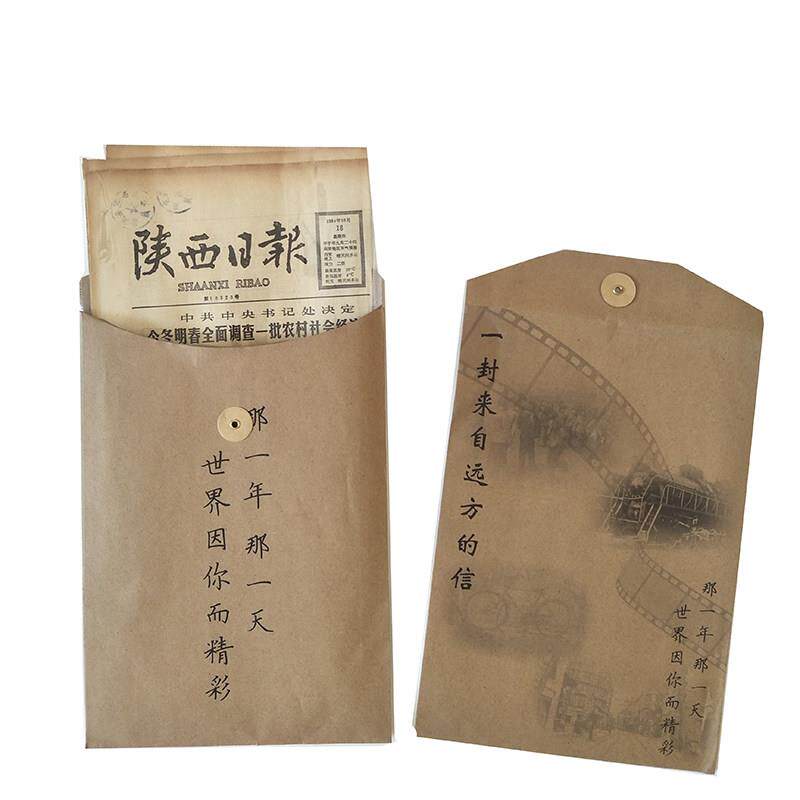 陕西日报
SHAANXI RIBAO
中共中央书记处决定
今冬明春全面调查一批农村社会经济
那一年 那一天
世界因你而精彩
一封来自远方的信
那一年 那一天
世界因你而精彩